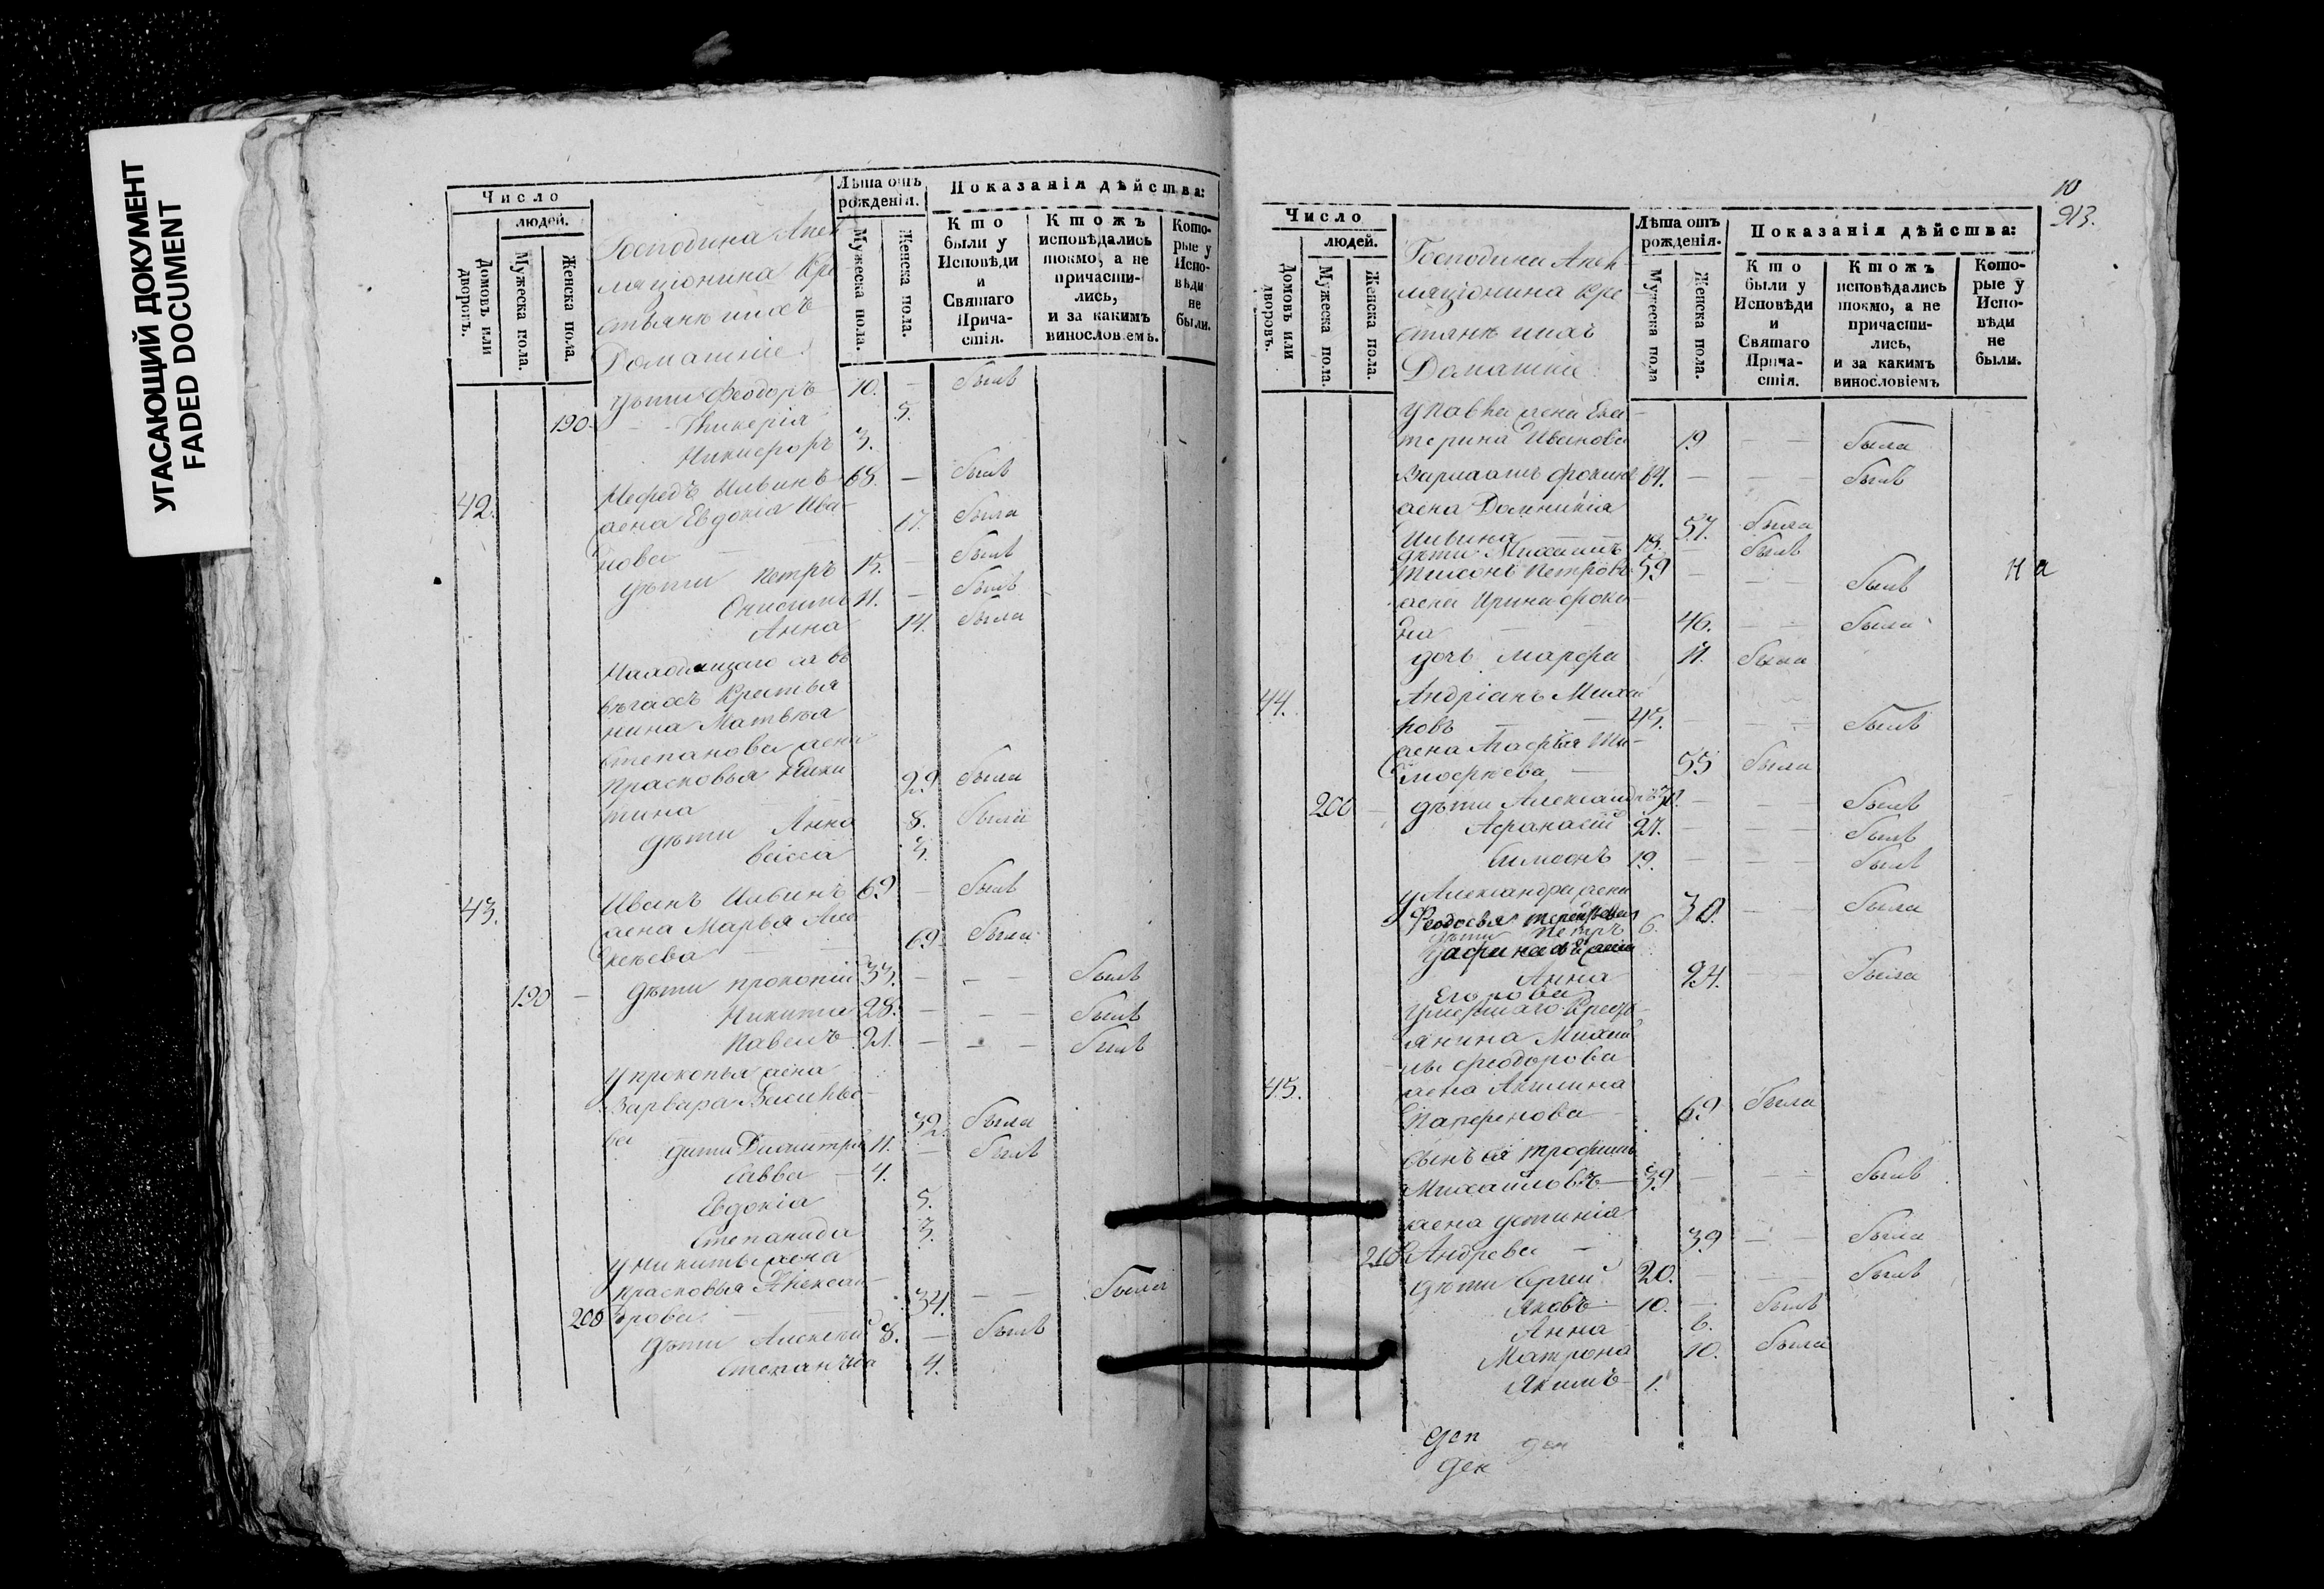 УГАСАЮЩИЙ ДОКУМЕНТ
FADED DOCUMENT
Число
людей.
Домовъ или дворовъ.
Мужеска пола.
Женска пола.
Господина Апел-
ляціонина Кре-
стьянъ ихъ
Домашніе:
Лѣта отъ рожденія.
Мужеска пола.
Женска пола.
Показанія дѣйства:
Кто были у Исповѣди и Святаго Причастія.
Ктожъ исповѣдались токмо, а не причастились, и за какимъ винословіемъ.
Которые у Исповѣди не были.
дѣти Феодоръ 10. — былъ
190. Гликерія 5.
Никифоръ 3.
42. Мефедъ Ильинъ 68. — былъ
жена Евдокіа Ива-
нова — 17. была
дѣти Петръ 15. — былъ
Онисимъ 11. — былъ
Анна 14. была
Находящаго ся въ
бѣгахъ Крестья
нина Матвѣя
Степанова жена
Прасковья Ники
тина 29 была
дѣти Анна 8. была
3.
43. Иванъ Ильинъ 69 — былъ
жена Марья Але
ксѣева — 69. была
190 — дѣти Прокопій 33. — — — былъ
Никита 28. — — — былъ
Павелъ 21. — — — былъ
у Прокопья жена
Варвара Василье-
ва 32. была
дѣти Димитрій 11. — былъ
Савва — 4.
Евдокіа 5.
Степанида 3.
у Никиты жена
Прасковья Алексан-
200 дрова — 34. — — была
дѣти Алексѣй 8. — былъ
Степанида 4.
10
913.
Число
людей.
Домовъ или дворовъ.
Мужеска пола.
Женска пола.
Господина Апел-
ляціонина Кре
стянъ ихъ
Домашніе
Лѣта отъ рожденія.
Мужеска пола
Женска пола.
Показанія дѣйства:
Кто были у Исповѣди и Святаго Причастія.
Ктожъ исповѣдались токмо, а не причастились, и за какимъ винословіемъ
Которые у Исповѣди не были.
у Павла жена Ека-
терина Иванова 19 — — была
Варлаамъ Фокинъ 64. — — — былъ
жена Домникіа
Ильина 57. была
дѣти Михаилъ 18. — былъ
Тимонъ Петровъ 59 — — — былъ
на
жена Ирина Фоки-
на — — 46. — — была
дочь Марфа 11. была
44. Андріанъ Михай
ловъ — — 45. — — былъ
жена Агафья Ти-
мофѣева — 55 была
200 — дѣти Александръ — — — былъ
Афанасій 27. — — — былъ
Симеонъ 19. — — — былъ
у Александра жена
Феодосья 30. — — была
дѣти Петръ 6.
у Афанасья жена
Анна 24. — была
Егорова
умершаго Крест-
янина Михаи
лы Феодорова
45. жена Акилина
Панфенова — 69 была
сынъ ея Трофимъ
Михайловъ — 39 — — — былъ
жена Устиніа
210 Андреева — 39 — — была
дѣти Сергей 20. — — — былъ
Яковъ — 10. — былъ
Анна 6.
Матрона 10. была
Якимъ — 1.
ден
ден
ден